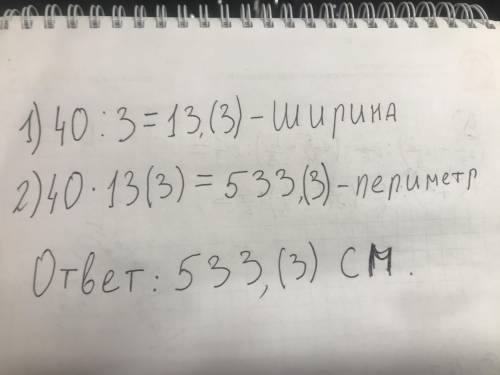 1) 40 : 3 = 13,(3) – ширина
2) 40 · 13(3) = 533,(3) – периметр
Ответ: 533,(3) см.